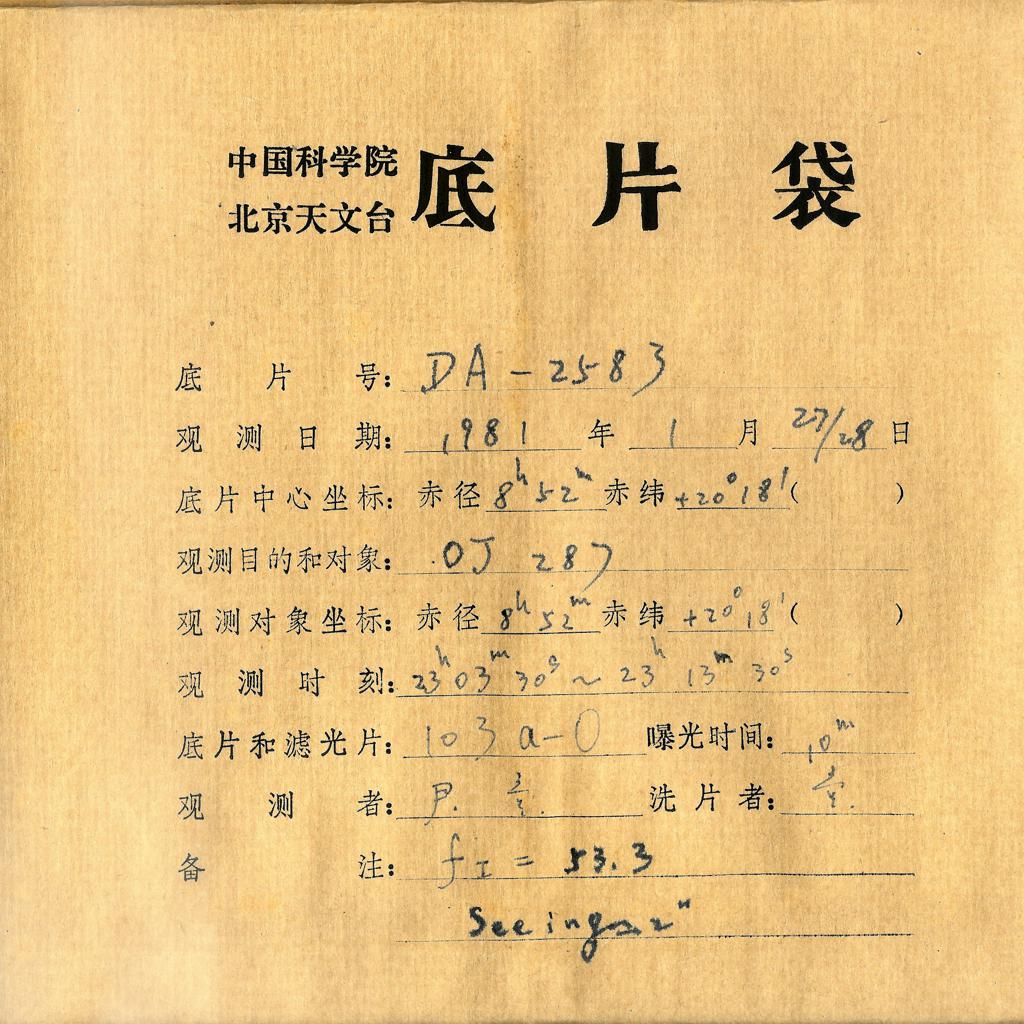 中国科学院
北京天文台
底片袋
底片号: DA-2583
观测日期: 1981年1月27/28日
底片中心坐标: 赤径8ʰ52ᵐ赤纬+20°18′( )
观测目的和对象: OJ 287
观测对象坐标: 赤径8ʰ52ᵐ赤纬+20°18′( )
观测时刻: 23ʰ03ᵐ30ˢ~23ʰ13ᵐ30ˢ
底片和滤光片: 103a-O 曝光时间: 10ᵐ
观测者: 洗片者:
备注: f_I = 53.3
Seeing≈2"